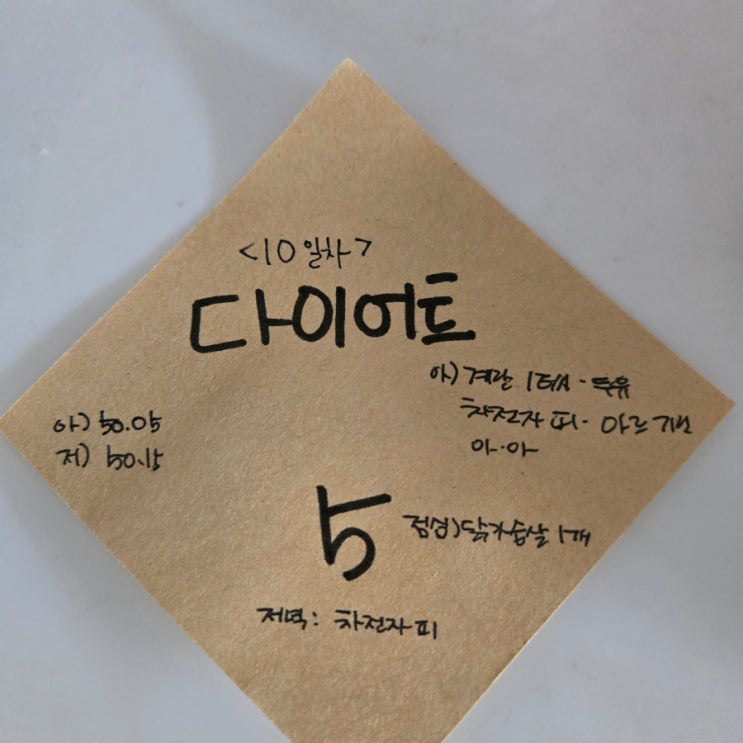 <10일차>
다이어트
아) 계란 1개 · 두유
차전자피 · 아르기닌
아·아
아) 50.05
저) 50.15
5
점심) 닭가슴살 1개
저녁: 차전자피